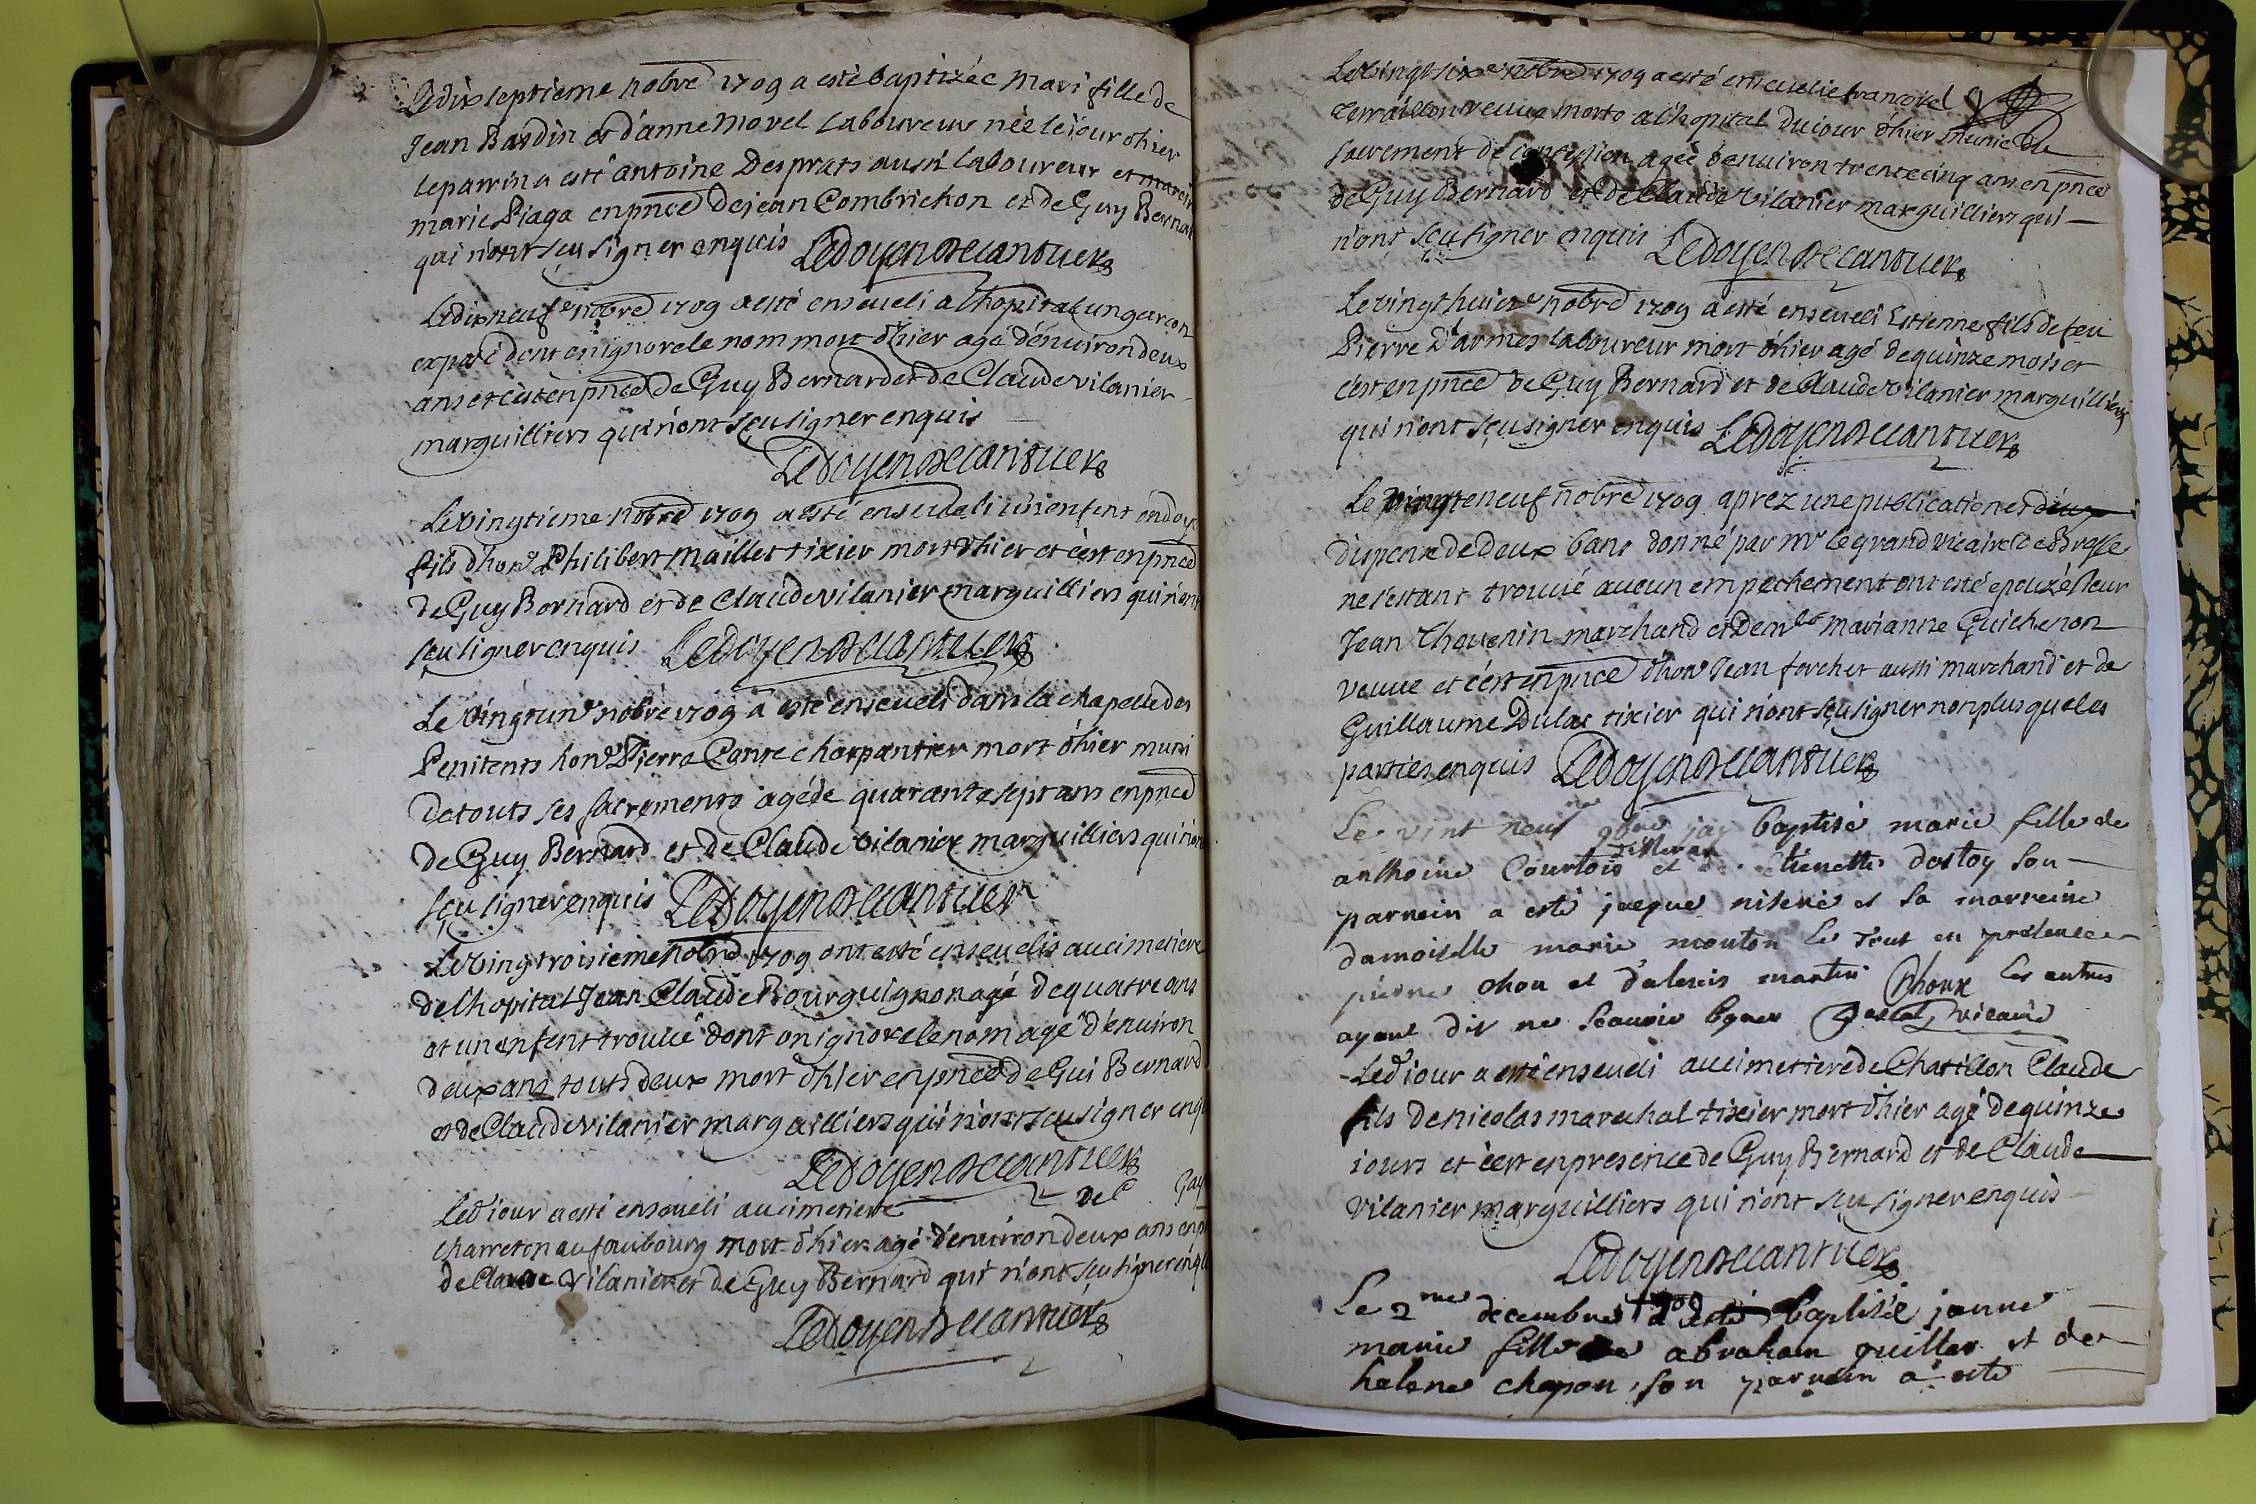 Ledix septieme nobre 1709 a esté baptizée Mari fille de
Jean Bardin et d'anne Morel Laboureur née le jour d'hier
le parrin a esté antoine Desprats aussi Laboureur et
marie Piaga en pnce de jean Combrichon et de Guy Bernard
qui n'ont sçu signer enquis Ledoyen
Ledixneufe nobre 1709 a esté enseveli a l'hopital un garçon
exposé dont on ignore le nom mort d'hier agé d'environ deux
ans et c'est en pnce de Guy Bernard et de Claude vilanier
marguilliers qui n'ont sçu signer enquis
Ledoyen
Le vingtieme nobre 1709 a esté enseveli un enfent
fils d'hon Philibert Maillet tixier mort d'hier et c'est en pnce
de Guy Bernard et de Claude vilanier marguilliers qui n'ont
sçu signer enquis Ledoyen
Le vingt un nobre 1709 a esté enseveli dans la chapelle des
Penitents hon Pierre charpantier mort d'hier muni
de touts ses sacrements agé de quarante sept ans en pnce
de Guy Bernard et de Claude vilanier marguilliers qui n'ont
sçu signer enquis Ledoyen
Le vingtroisieme nobre 1709 ont esté ensevelis au cimetiere
de l'hopital Jean Claude Bourguignon agé de quatre ans
et un enfent trouvé dont on ignore le nom agé d'environ
deux ans touts deux mort d'hier en pnce de Gui Bernard
et de Claude vilanier marguilliers qui n'ont sçu signer
Ledoyen
Led jour a esté enseveli au cimetiere de
charreton au faubourg mort d'hier agé d'environ deux ans
de Claude vilanier et de Guy Bernard qui n'ont sçu signer
Ledoyen
Le vingt sixe nobre 1709 a esté ensevelie
veuve morte a l'hopital du jour d'hier munie du
sacrement de agée d'environ trente cinq ans en pnce
de Guy Bernard et de Claude vilanier marguilliers qui
n'ont sçu signer enquis Ledoyen
Le vingthuite nobre 1709 a esté enseveli Estienne fils de feu
Pierre D'armes laboureur mort d'hier agé de quinze mois et
c'est en pnce de Guy Bernard et de Claude vilanier marguilliers
qui n'ont sçu signer enquis Ledoyen
Le vingteneuf nobre 1709 aprez une publication et
dispense de deux bans donné par mr le grand vicaire de Bresse
ne s'estant trouvé aucun empechement ont esté epouzé sieur
Jean Thouenin marchand et Demlle marianne Guichenon
veuve et c'est en pnce d'hon Jean forchet aussi marchand et de
Guillaume Dulac tixier qui n'ont sçu signer non plus que les
parties enquis Ledoyen
Le vint neuf 9bre jay baptisé marie fille de
anthoine Courtois et etienette dostoy son
parrein a esté jaque et sa marreine
damoiselle marie mouton le tout en presence
pierre et d'alexis martin les autres
ayant dit ne scauoir vicaire
Led jour a esté enseveli au cimetiere de Chatillon Claude
fils de nicolas marechal tixier mort d'hier agé de quinze
iours et c'est en presence de Guy Bernard et de Claude
vilanier marguilliers qui n'ont sçu signer enquis
Ledoyen
Le 2me decembre baptisée janne
marie fille de abraham et de
helene chapon son parrein a esté